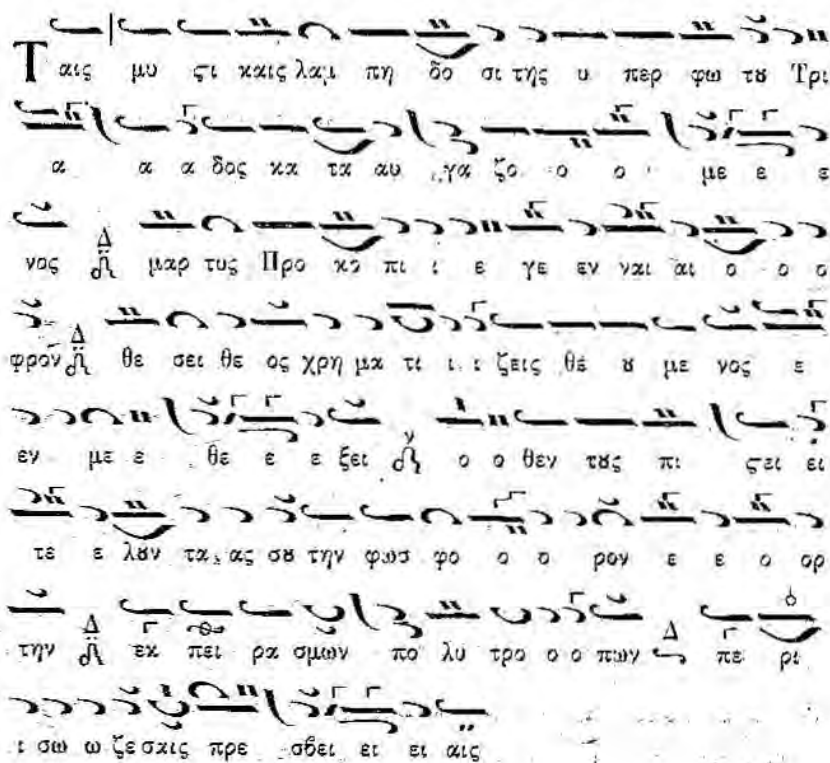 Ταις μυ ϛι καις λαμ πη δο σι της υ περ φω τȣ Τρι
α α α δος κα τα αυ γα ζο ο ο με ε ε
νος Δ μαρ τυς Προ κο πι ι ε γε εν ναι αι ο ο ο
φρον Δ θε σει θε ος χρη μα τι ι ι ζεις θε ȣ με νος ε
εν με ε θε ε ε ξει ο ο θεν τȣς πι ϛει ει
τε ε λȣν τα ας σȣ την φωσ φο ο ο ρον ε ε ο ορ
την Δ εκ πει ρα σμων πο λυ τρο ο ο πων Δ πε ρι
ι σω ω ζε σαις πρε σβει ει ει αις